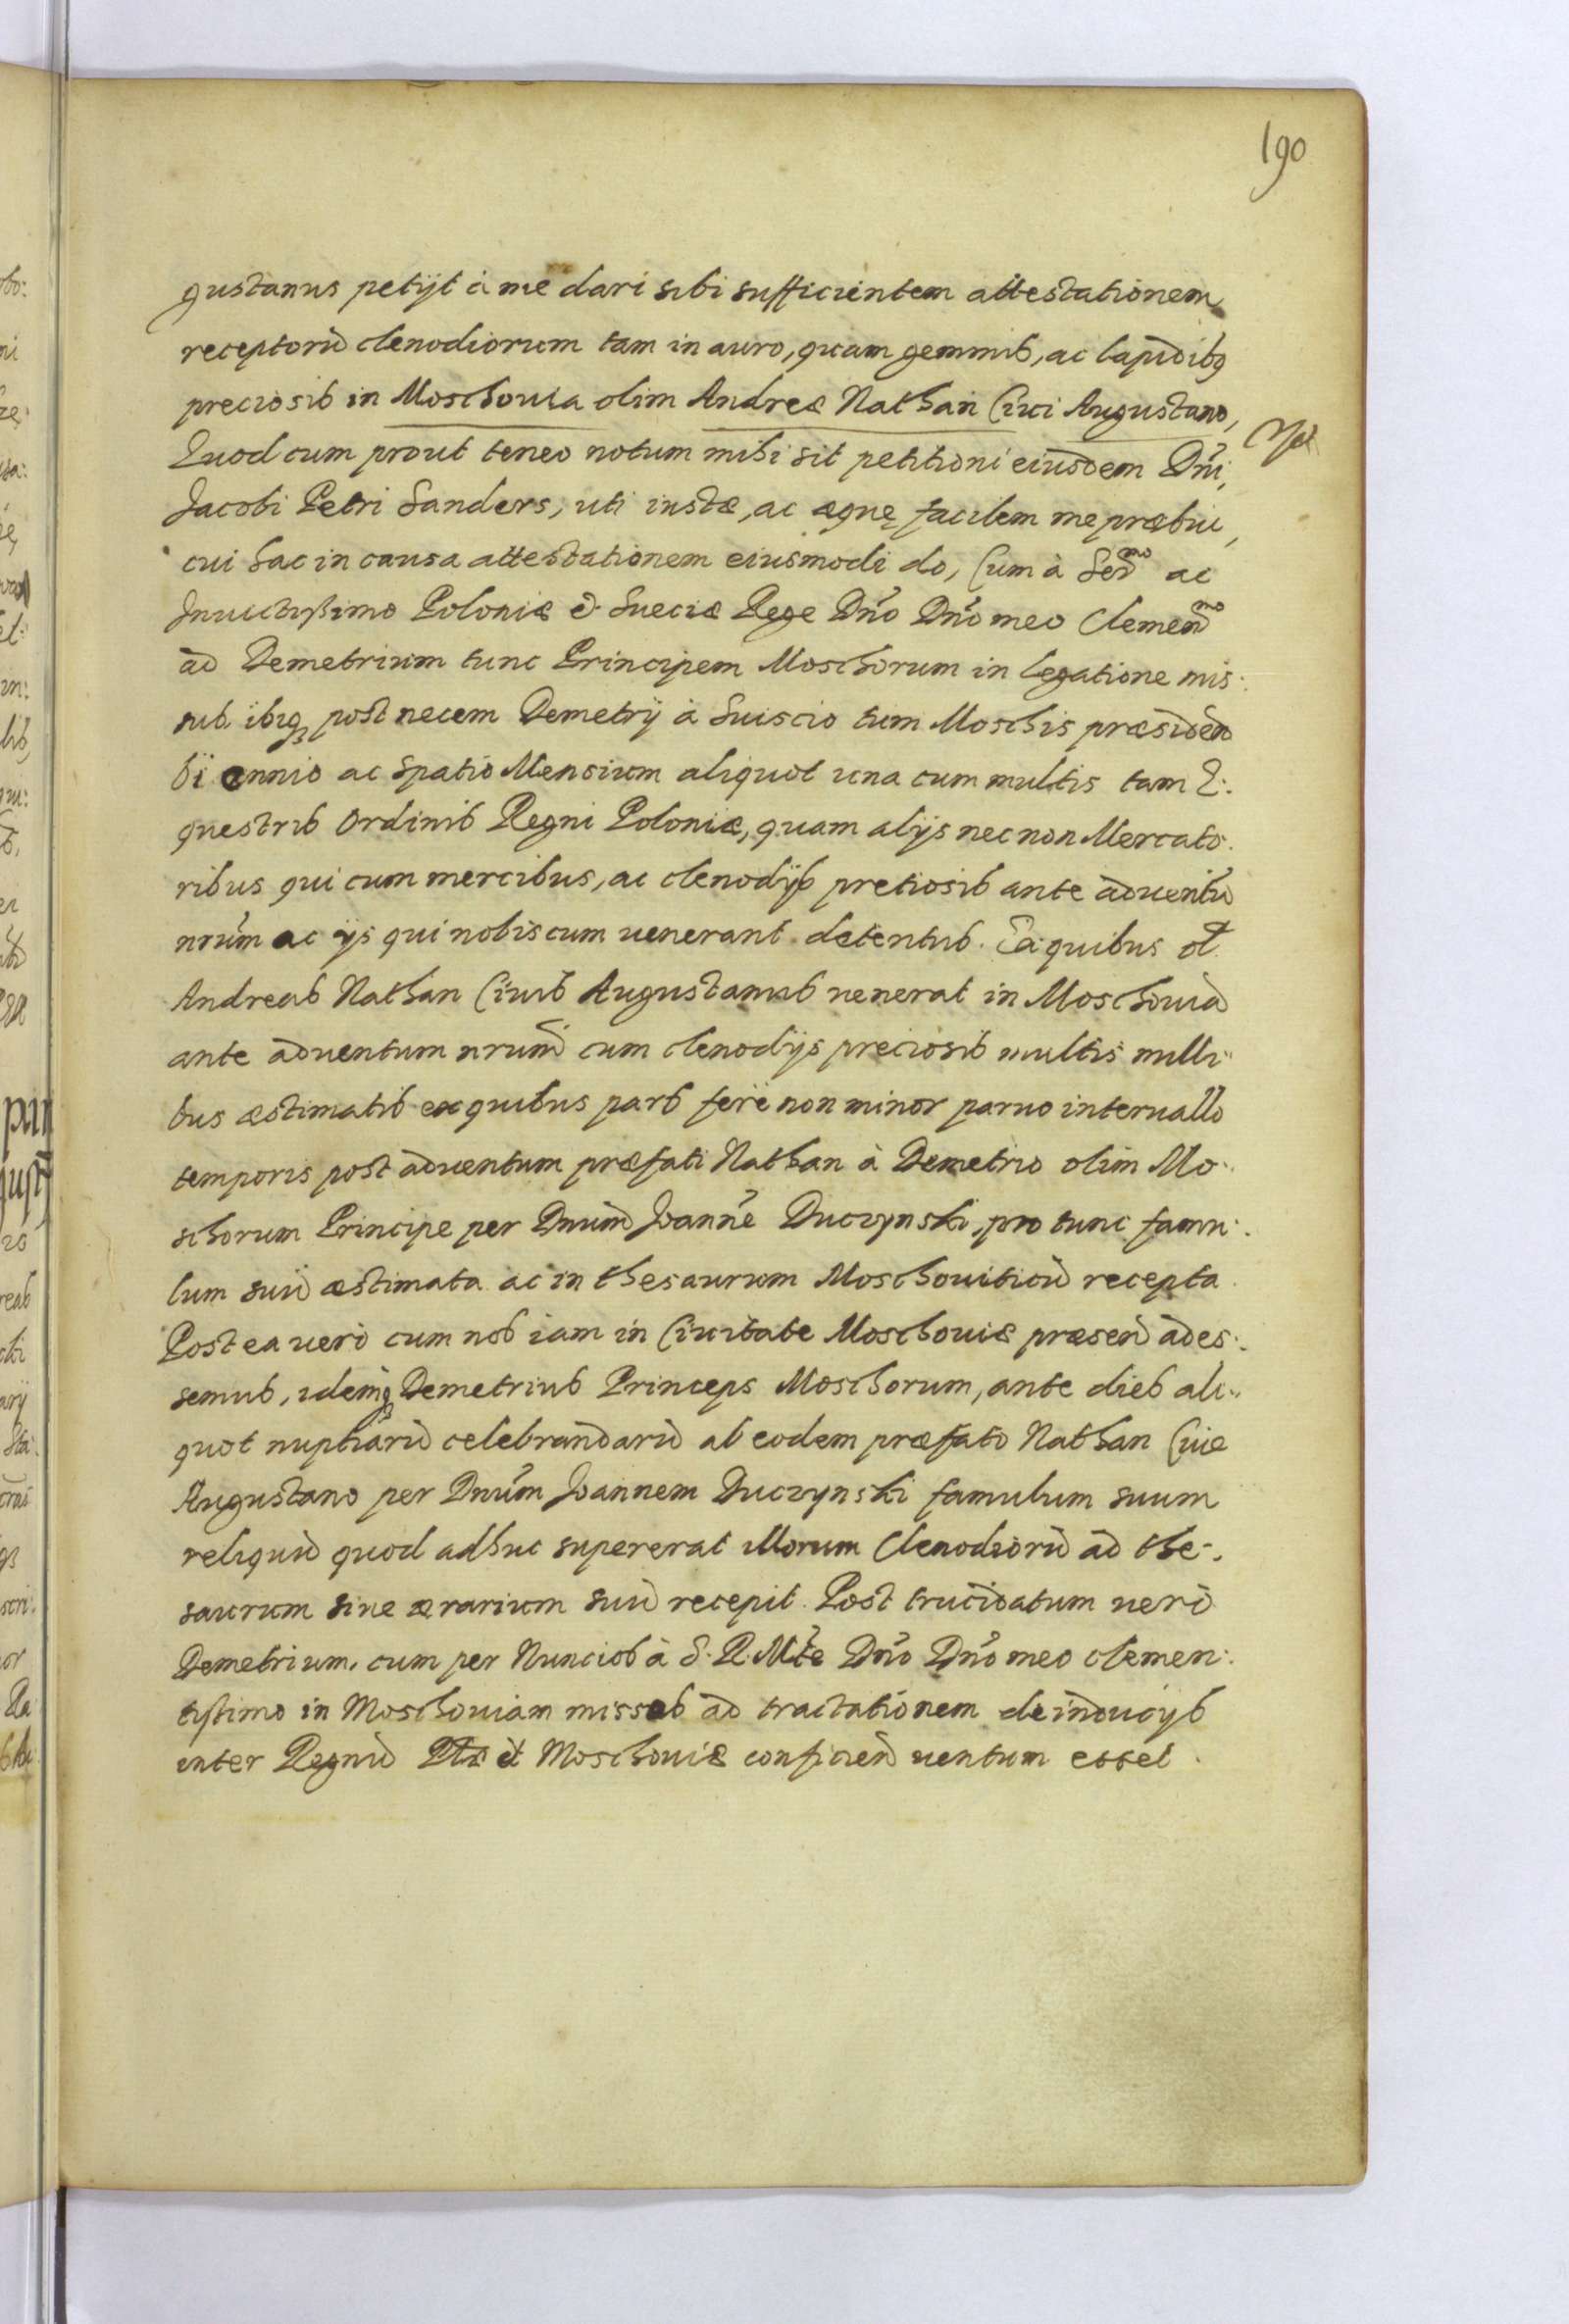 190
gustanus petijt à me dari sibi sufficientem attestationem
receptorũ clenodiorum tam in auro, quam gemmis, ac lapidibq
preciosis in Moschouia olim Andreæ Nathan Ciui Augustano,
Quod cum prout teneo notum mihi sit petitioni eiusdem Dñi,
Jacobi Petri Sanders, uti iustæ, ac æquę facilem me præbui,
cui hac in causa attestationem eiusmodi do, Cum à Serᵐᵒ ac
Inuictißimo Poloniæ & Sueciæ Rege Dño Dño meo Clemenᵐᵒ
ad Demetrium tunc Principem Moschorum in legatione mis:
sus ibiq₃ post necem Demetrij à Suiscio tum Moschis præsideñ
biennio ac spatio Mensium aliquot una cum multis tam E:
questris Ordinis Regni Poloniæ, quam alijs nec non Mercato:
ribus qui cum mercibus, ac clenodijs pretiosis ante aduentũ
nrũm ac ijs qui nobiscum uenerant detentus. Ex quibus ol
Andreas Nathan Ciuis Augustanus uenerat in Moschouiã
ante aduentum nrum̃ cum clenodijs preciosis multis milli:
bus æstimatis ex quibus pars ferè non minor paruo interuallo
temporis post aduentum præfati Nathan à Demetrio olim Mo:
schorum Principe per Dnum̃ Joannẽ Duczynski, pro tunc famu:
lum suũ æstimata ac in thesaurum Moschouiticũ recepta.
Postea uerò cum nos iam in Ciuitate Moschouiæ præseñ ades:
semus, idemq₃ Demetrius Princeps Moschorum, ante dies ali:
quot nuptiarũ celebrandarũ ab eodem præfato Nathan Ciue
Augustano per Dnũm Joannem Duczynski famulum suum
reliquũ quod adhuc supererat illorum Clenodiorũ ad the:
saurum siue ærarium suũ recepit. Post trucidatum uerò
Demetrium, cum per Nuncios à S. R. Mte Dño Dño meo clemen:
tißimo in Moschouiam missos ad tractationem de inducijs
inter Regnũ Plæ et Moschouiæ conficieñ uentum esset.